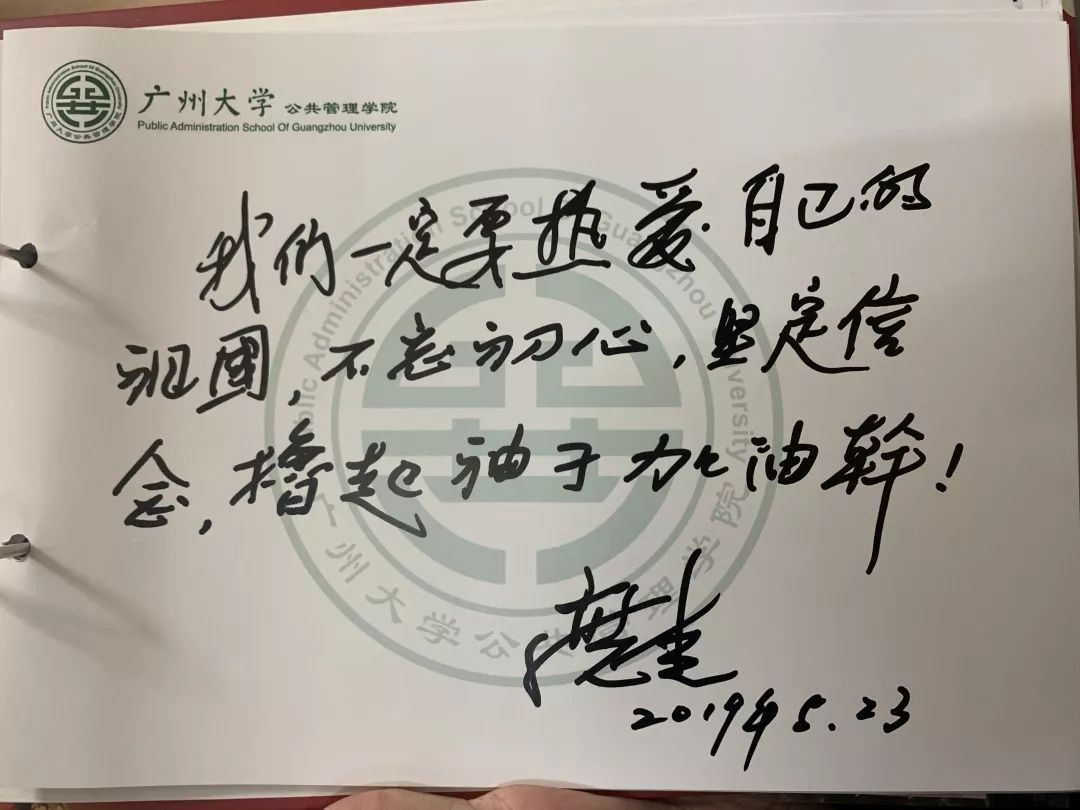 广州大学 公共管理学院
Public Administration School Of Guangzhou University
我们一定要热爱自己的
祖國,不忘初心,坚定信
念,撸起袖子加油幹!
2019年5.23
Public Administration School Of Guangzhou University
广州大学公共管理学院